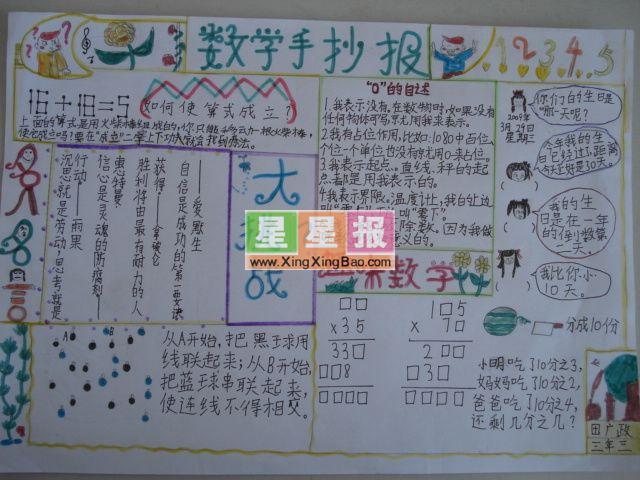 数学手抄报
1 2 3 4 5
16+18=5
如何使算式成立?
上面的算式是用火柴棒组成的,你只能移动一根火柴棒,
使它成立吗?要在"成立"二字上下功夫
"0"的自述
1.我表示没有,在数物时,如果没有
任何物体可写,就用我来表示。
2.我有占位作用,比如:1080中百位、
个位一个单位也没有就用0来占位。
3.我表示起点。直线、秤的起
点都是用我表示的。
4.我表示界限。温度计上,我的上边
叫"零下"。
因为我做
2009年
3月29日
星期三
你们的生日是
哪一天呢?
今年我的生
日已经过了,距离
今天正好是30天。
我的生
日是在一年
的倒数第
二天。
我比你小
10天。
行动——雨果
沉思就是劳动,思考就是
信心是灵魂的防腐剂
惠特曼
胜利将由最有耐力的人
获得——拿破仑
自信是成功的第一要诀
——爱默生
大
战
星星报
www.XingXingBao.com
趣味数学
□□
×35
33□
□□8
□□□□
1□5
×7□
2□□
□3□
□□□□
分成10份
小明吃了10分之3,
妈妈吃了10分之2,
爸爸吃了10分之4,
还剩几分之几?
从A开始,把黑球用
线联起来;从B开始,
把蓝球串联起来,
使连线不得相交。
田广政
三年三